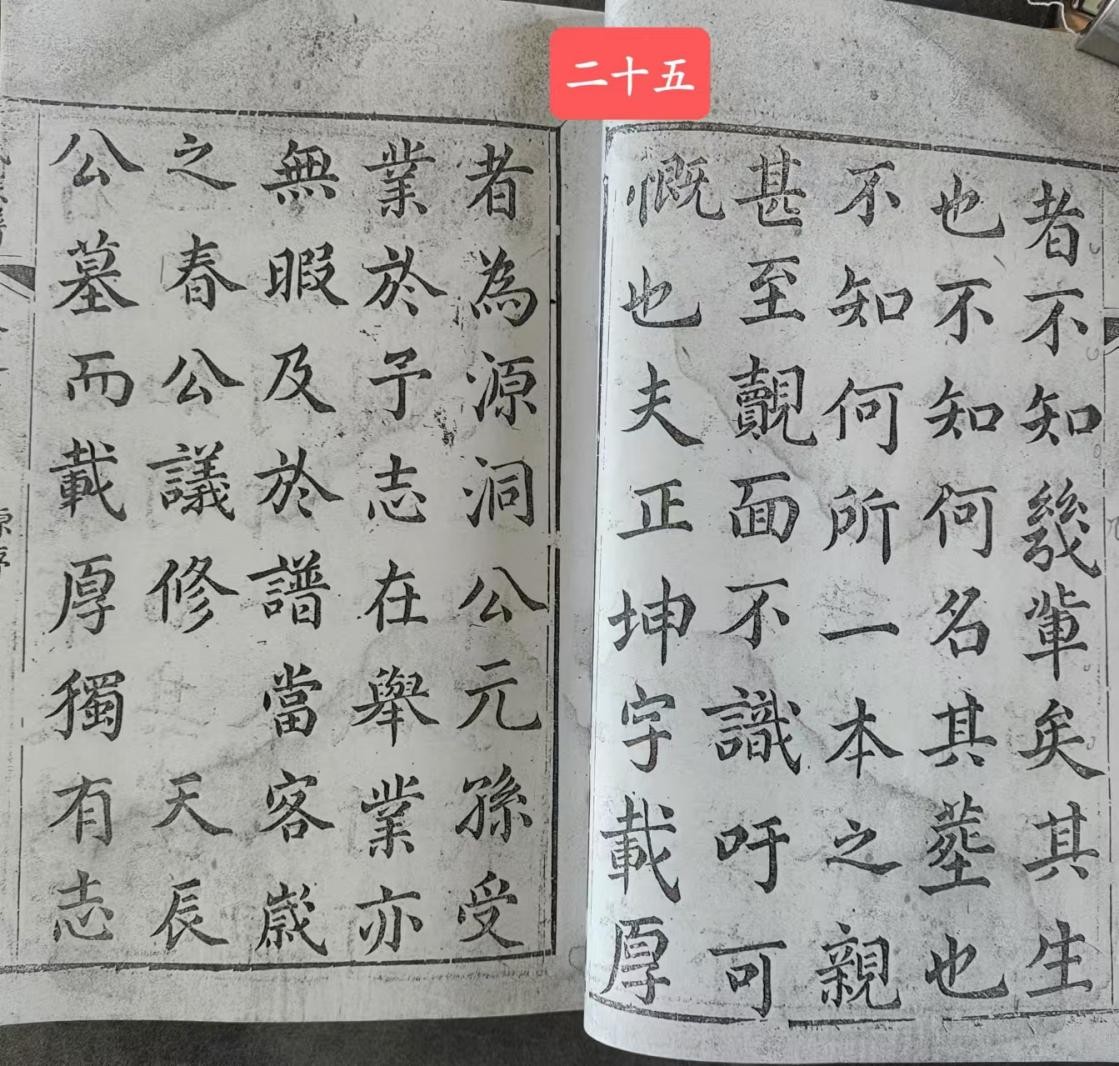 二十五
者不知幾輩矣其生
也不知何名其塟也
不知何所一本之親
甚至觌面不識吁可
慨也夫正坤字載厚
者為源洞公元孫受
業於予志在舉業亦
無暇及於譜當客歲
之春公議修天辰
公墓而載厚獨有志